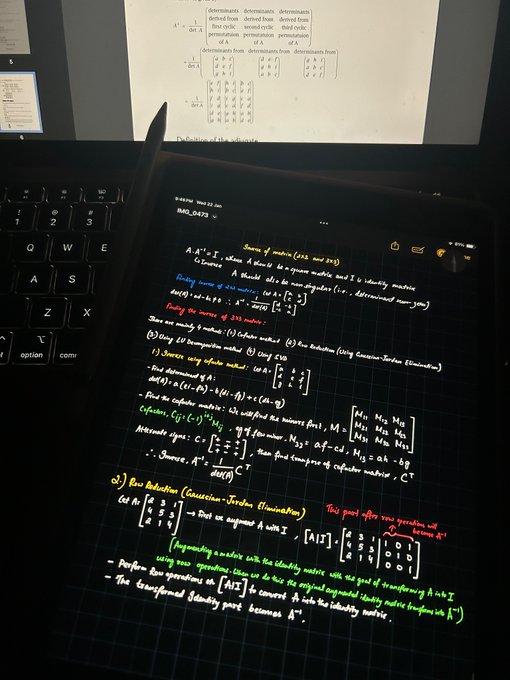 determinants determinants determinants
derived from derived from derived from
first cyclic second cyclic third cyclic
permutation permutation permutation
of A of A of A
A⁻¹ = 1/det A
determinants from determinants from determinants from
= 1/det A [a b c d e f g h i] [d e f g h i a b c] [g h i a b c d e f]
= 1/det A
Definition of the adjugate
5
6
9:46 PM Wed 22 Jan
81%
IMG_0473
Inverse of matrix (2x2 and 3x3)
A·A⁻¹ = I, where A should be a square matrix and I is identity matrix
↳ Inverse A should also be non-singular (i.e. determinant non-zero)
Finding inverse of 2x2 matrix: Let A = [a b; c d]
det(A) = ad - bc ≠ 0 ∴ A⁻¹ = 1/det(A) [d -b; -c a]
Finding the inverse of 3x3 matrix:
There are mainly 4 methods: (1) Cofactor method (2) Row Reduction (Using Gaussian-Jordan Elimination)
(3) Using LU Decomposition method (4) Using SVD
1.) Inverse using cofactor method: Let A = [a b c; d e f; g h i]
- Find determinant of A:
det(A) = a(ei - fh) - b(di - fg) + c(dh - eg)
- Find the cofactor matrix: We will find the minors first, M = [M₁₁ M₁₂ M₁₃; M₂₁ M₂₂ M₂₃; M₃₁ M₃₂ M₃₃]
Cofactors, Cᵢⱼ = (-1)ⁱ⁺ʲ Mᵢⱼ, eg of few minor. M₃₂ = af - cd, M₁₃ = ah - bg
Alternate signs: C = [+ - +; - + -; + - +], then find transpose of cofactor matrix, Cᵀ
∴ Inverse, A⁻¹ = 1/det(A) Cᵀ
2.) Row Reduction (Gaussian-Jordan Elimination)
This part after row operations will
become A⁻¹
Let A: [2 3 1; 4 5 3; 2 1 4] → First we augment A with I, [A|I] = [2 3 1 | 1 0 1; 4 5 3 | 0 1 0; 2 1 4 | 0 0 1]
(Augmenting a matrix with the identity matrix with the goal of transforming A into I
using row operations. When we do this the original augmented identity matrix transforms into A⁻¹)
- Perform Row operations on [A|I] to convert A into the identity matrix.
- The transformed Identity part becomes A⁻¹.
!
1
@
2
#
3
Q
W
E
A
S
Z
X
option